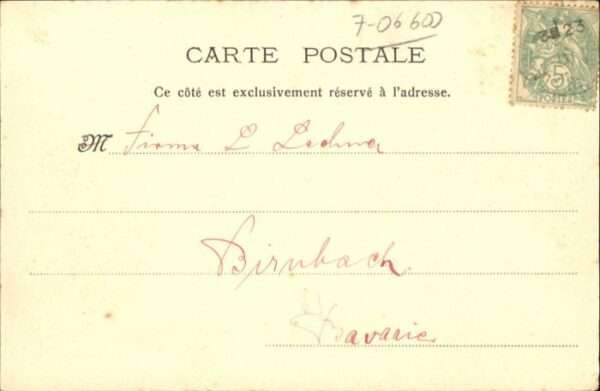 7-06600
CARTE POSTALE
Ce côté est exclusivement réservé à l'adresse.
M Firma L Lechner
Birnbach.
Bavarie
5
POSTES